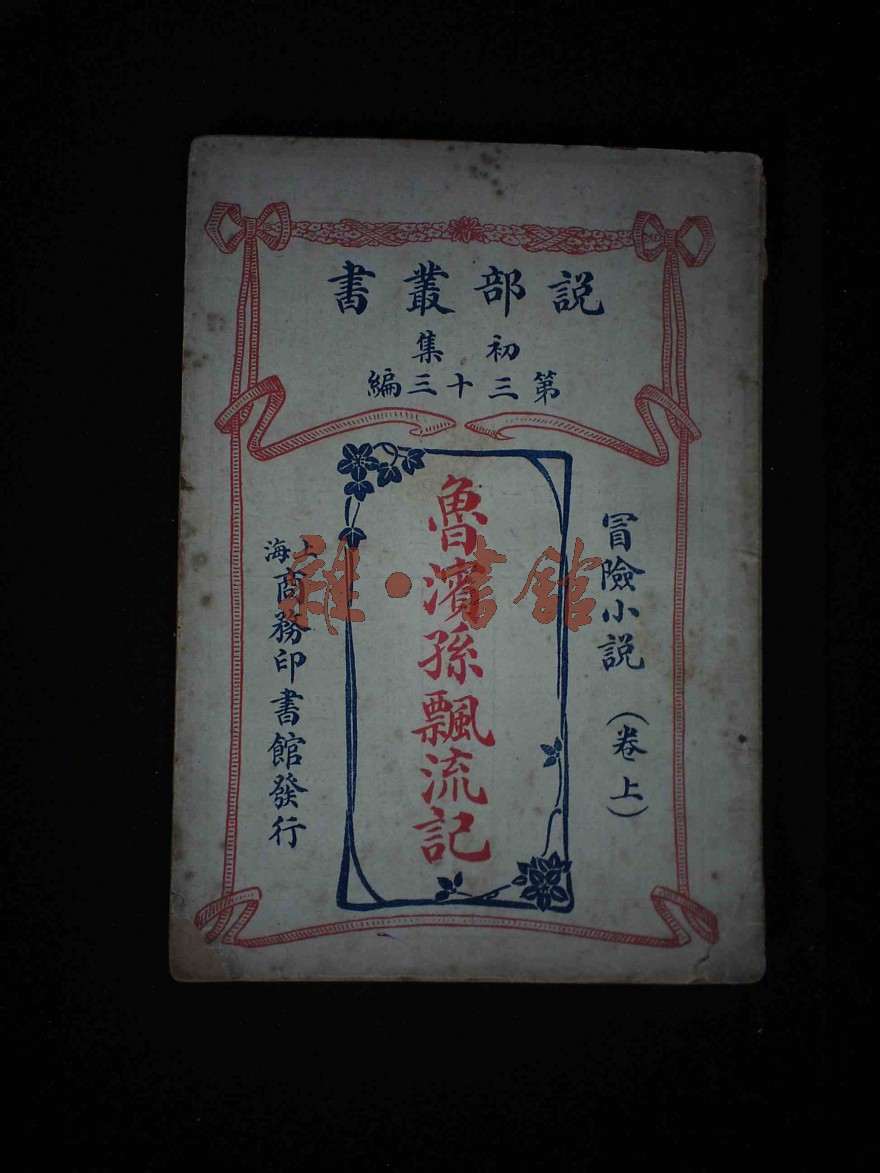 説部叢書
初集
第三十三編
冒險小説（卷上）
魯濱孫飄流記
上海商務印書館發行
雜·書館